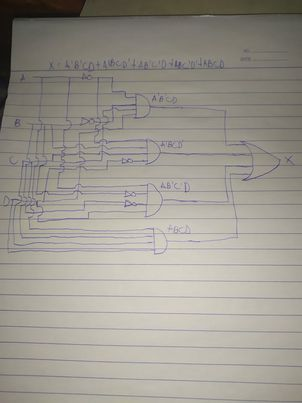 X = A'B'CD + A'BCD' + AB'C'D + ABC'D' + ABCD
A
A'BCD
B
A'BCD'
C
X
AB'C'D
D
ABCD